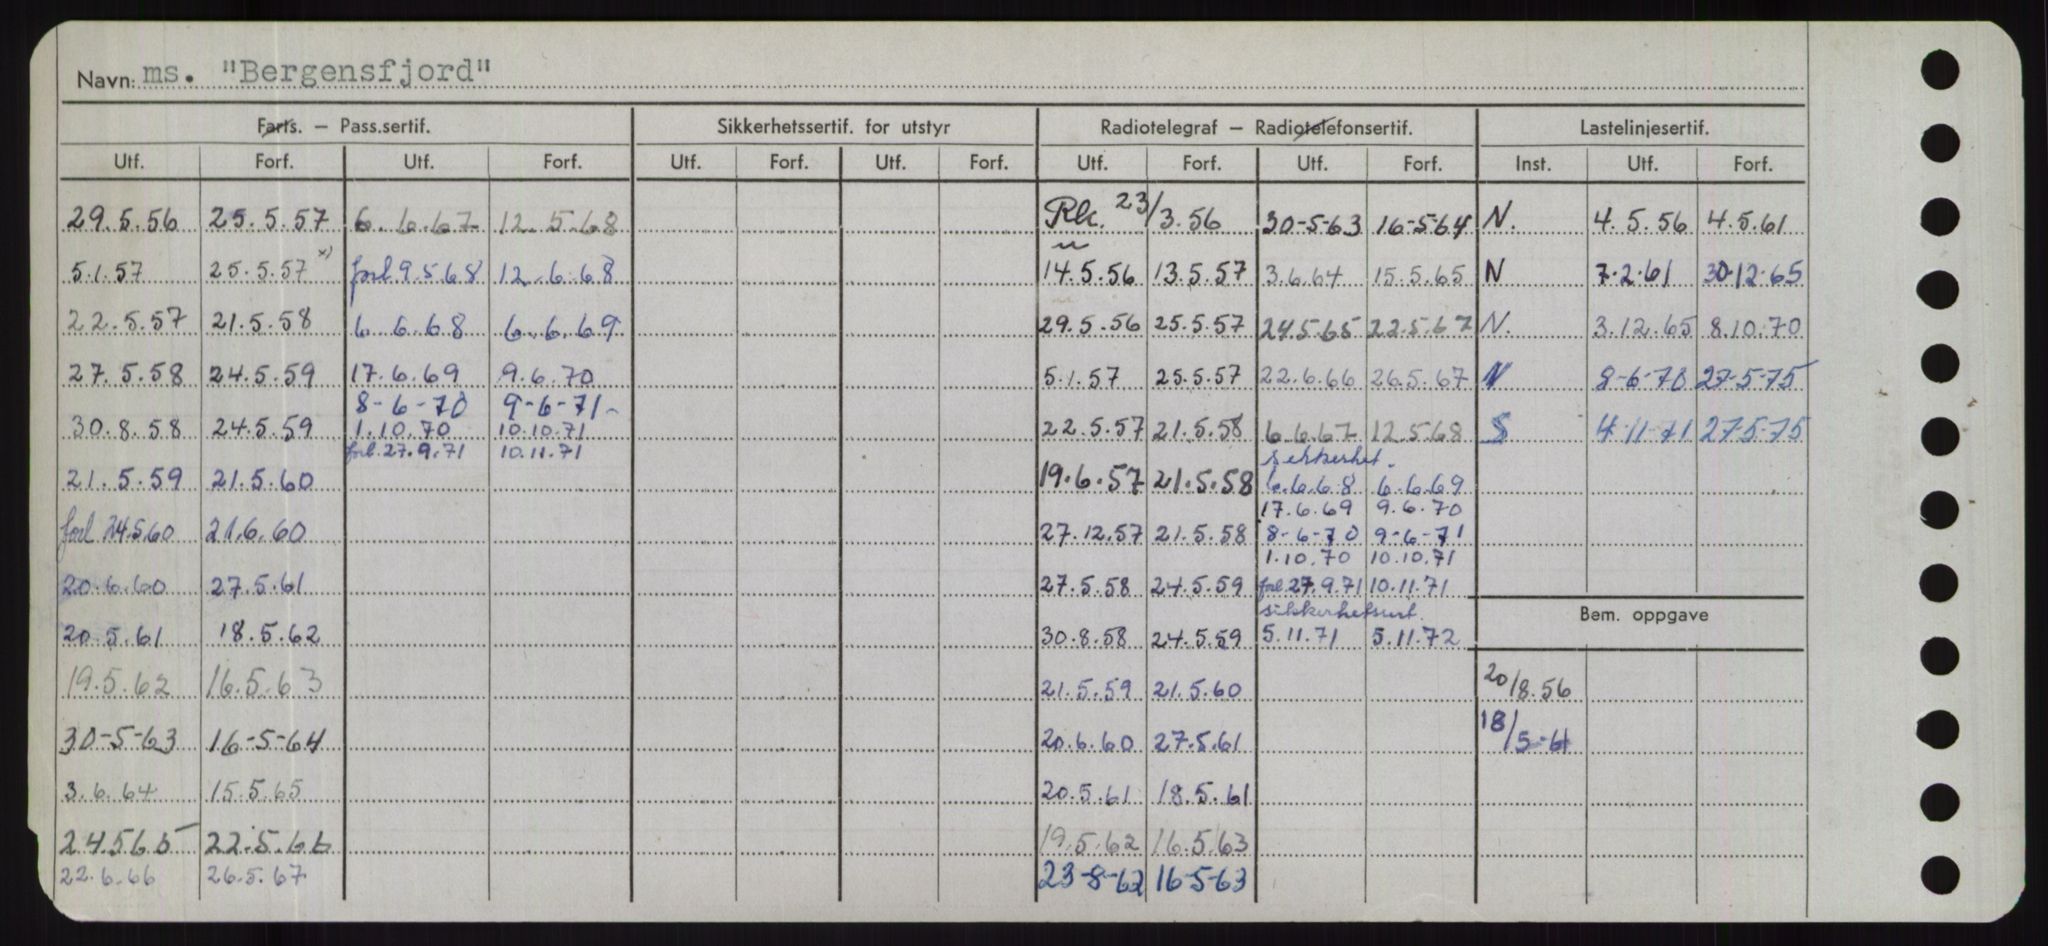 Navn: ms. "Bergensfjord"
Farts. — Pass.sertif. Sikkerhetssertif. for utstyr Radiotelegraf — Radiotelefonsertif. Lastelinjesertif.
Utf. Forf. Utf. Forf. Utf. Forf. Utf. Forf. Utf. Forf. Utf. Forf. Inst. Utf. Forf.
29.5.56 25.5.57 6.6.67 12.5.68 Rk. 23/3.56 30-5-63 16-5-64 N. 4.5.56 4.5.61
5.1.57 25.5.57 x) forl 9.5.68 12.6.68 14.5.56 13.5.57 3.6.64 15.5.65 N 7.2.61 30.12.65
22.5.57 21.5.58 6.6.68 6.6.69 29.5.56 25.5.57 24.5.65 22.5.67 N. 3.12.65 8.10.70
27.5.58 24.5.59 17.6.69 9.6.70 5.1.57 25.5.57 22.6.66 26.5.67 N 8-6-70 27-5-75
8-6-70 9-6-71
30.8.58 24.5.59 1.10.70 10.10.71 22.5.57 21.5.58 6.6.67 12.5.68 S 4-11-71 27-5-75
forl. 27.9.71 10.11.71 sikkerhet.
21.5.59 21.5.60 19.6.57 21.5.58 6.6.68 6.6.69
17.6.69 9.6.70
forl 24.5.60 21.6.60 27.12.57 21.5.58 8-6-70 9-6-71
1.10.70 10.10.71
20.6.60 27.5.61 27.5.58 24.5.59 forl. 27.9.71 10.11.71
sikkerhetssert. Bem. oppgave
20.5.61 18.5.62 30.8.58 24.5.59 5.11.71 5.11.72
19.5.62 16.5.63 21.5.59 21.5.60 20/8.56
30-5-63 16-5-64 20.6.60 27.5.61 18/5-61
3.6.64 15.5.65 20.5.61 18.5.61
24.5.65 22.5.66 19.5.62 16.5.63
22.6.66 26.5.67 23-8-62 16-5-63